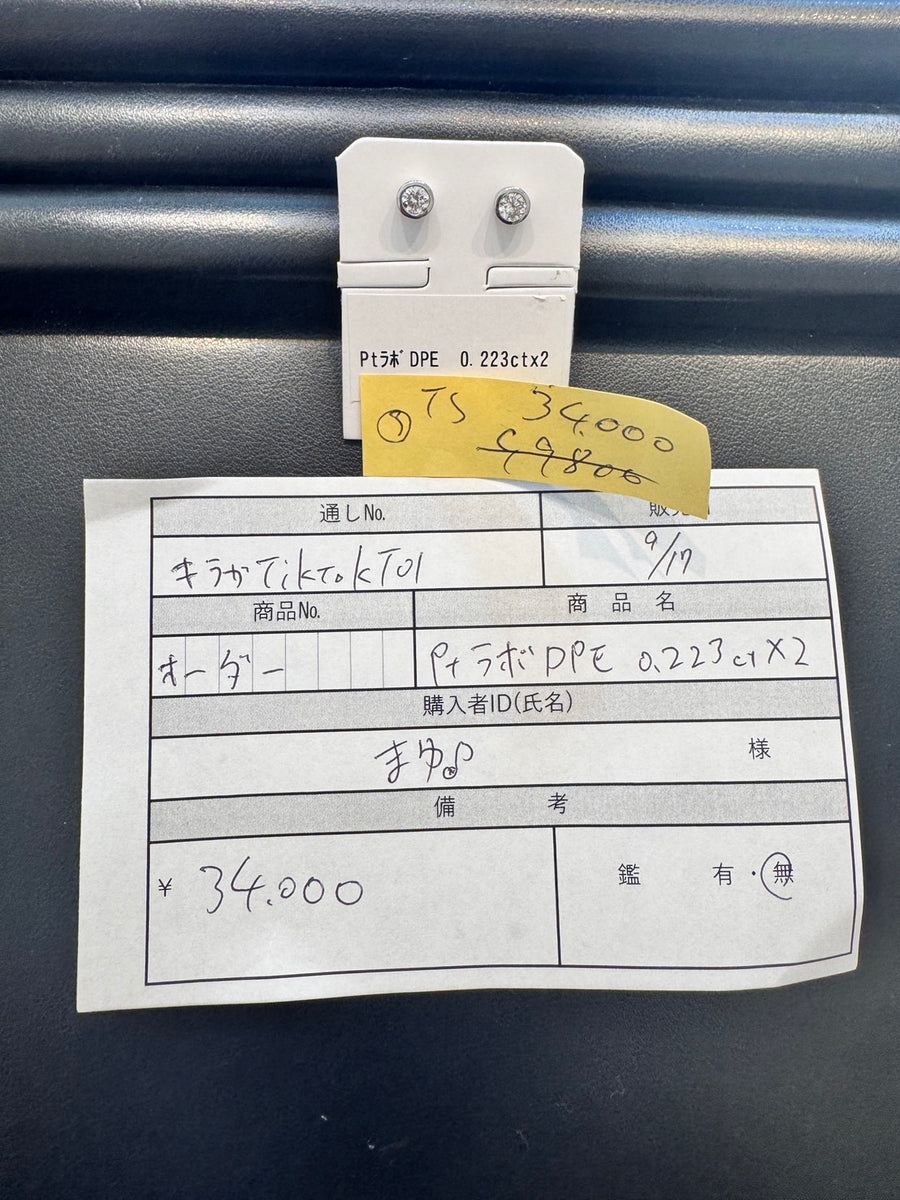 Ptラボ DPE 0.223ctx2
TS 34.000
49800
通しNo.
キラガTikTokT01
9/17
商品No.
商品名
オーダー
PtラボDPE 0.223ct×2
購入者ID(氏名)
まゆ♪ 様
備考
¥ 34.000
鑑 有・無